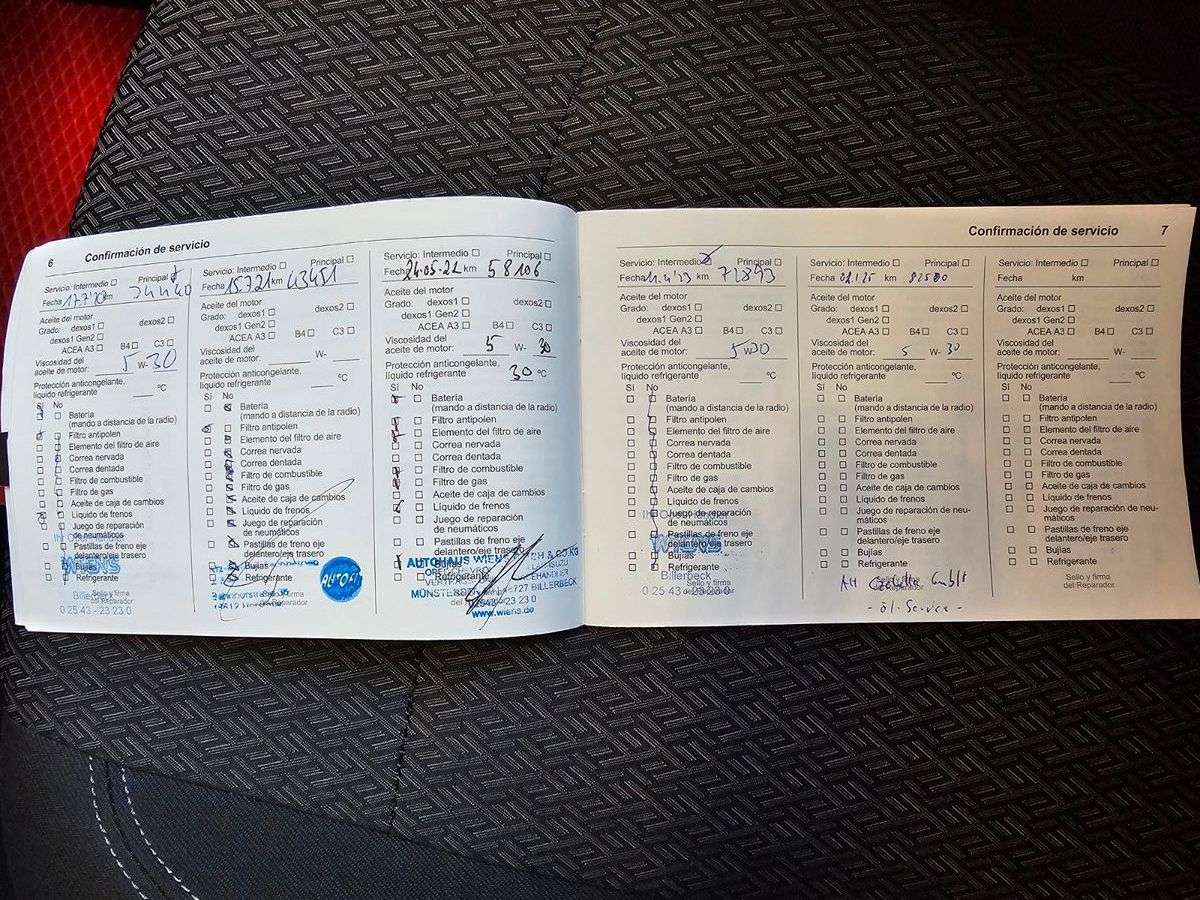 6 Confirmación de servicio
Servicio: Intermedio Principal
Fecha 17.7.20 km
Aceite del motor
Grado: dexos1 dexos2
dexos1 Gen2
ACEA A3 B4 C3
Viscosidad del
aceite de motor: 5 W- 30
Protección anticongelante,
líquido refrigerante °C
Sí No
Batería
(mando a distancia de la radio)
Filtro antipolen
Elemento del filtro de aire
Correa nervada
Correa dentada
Filtro de combustible
Filtro de gas
Aceite de caja de cambios
Líquido de frenos
Juego de reparación
de neumáticos
Pastillas de freno eje
delantero/eje trasero
Bujías
Refrigerante
WIENS
0 25 43 - 23 23 0
Servicio: Intermedio Principal
Fecha 15.7.21 km 43451
Aceite del motor
Grado: dexos1 dexos2
dexos1 Gen2
ACEA A3 B4 C3
Viscosidad del
aceite de motor: W-
Protección anticongelante,
líquido refrigerante °C
Sí No
Batería
(mando a distancia de la radio)
Filtro antipolen
Elemento del filtro de aire
Correa nervada
Correa dentada
Filtro de combustible
Filtro de gas
Aceite de caja de cambios
Líquido de frenos
Juego de reparación
de neumáticos
Pastillas de freno eje
delantero/eje trasero
Bujías
Refrigerante
AUTOFIT
Servicio: Intermedio Principal
Fecha 24-05-22 km 58106
Aceite del motor
Grado: dexos1 dexos2
dexos1 Gen2
ACEA A3 B4 C3
Viscosidad del
aceite de motor: 5 W- 30
Protección anticongelante,
líquido refrigerante 30 °C
Sí No
Batería
(mando a distancia de la radio)
Filtro antipolen
Elemento del filtro de aire
Correa nervada
Correa dentada
Filtro de combustible
Filtro de gas
Aceite de caja de cambios
Líquido de frenos
Juego de reparación
de neumáticos
Pastillas de freno eje
delantero/eje trasero
Bujías
Refrigerante
AUTOHAUS WIENS
BILLERBECK
www.wiens.de
Confirmación de servicio 7
Servicio: Intermedio Principal
Fecha 11.4.'23 km 71893
Aceite del motor
Grado: dexos1 dexos2
dexos1 Gen2
ACEA A3 B4 C3
Viscosidad del
aceite de motor: 5W30
Protección anticongelante,
líquido refrigerante °C
Sí No
Batería
(mando a distancia de la radio)
Filtro antipolen
Elemento del filtro de aire
Correa nervada
Correa dentada
Filtro de combustible
Filtro de gas
Aceite de caja de cambios
Líquido de frenos
Juego de reparación
de neumáticos
Pastillas de freno eje
delantero/eje trasero
Bujías
Refrigerante
WIENS
Billerbeck
0 25 43 - 23 23 0
Servicio: Intermedio Principal
Fecha km 82500
Aceite del motor
Grado: dexos1 dexos2
dexos1 Gen2
ACEA A3 B4 C3
Viscosidad del
aceite de motor: 5 W- 30
Protección anticongelante,
líquido refrigerante °C
Sí No
Batería
(mando a distancia de la radio)
Filtro antipolen
Elemento del filtro de aire
Correa nervada
Correa dentada
Filtro de combustible
Filtro de gas
Aceite de caja de cambios
Líquido de frenos
Juego de reparación de neu-
máticos
Pastillas de freno eje
delantero/eje trasero
Bujías
Refrigerante
AH GmbH
Servicio: Intermedio Principal
Fecha km
Aceite del motor
Grado: dexos1 dexos2
dexos1 Gen2
ACEA A3 B4 C3
Viscosidad del
aceite de motor: W-
Protección anticongelante,
líquido refrigerante °C
Sí No
Batería
(mando a distancia de la radio)
Filtro antipolen
Elemento del filtro de aire
Correa nervada
Correa dentada
Filtro de combustible
Filtro de gas
Aceite de caja de cambios
Líquido de frenos
Juego de reparación de neu-
máticos
Pastillas de freno eje
delantero/eje trasero
Bujías
Refrigerante
Sello y firma
del Reparador